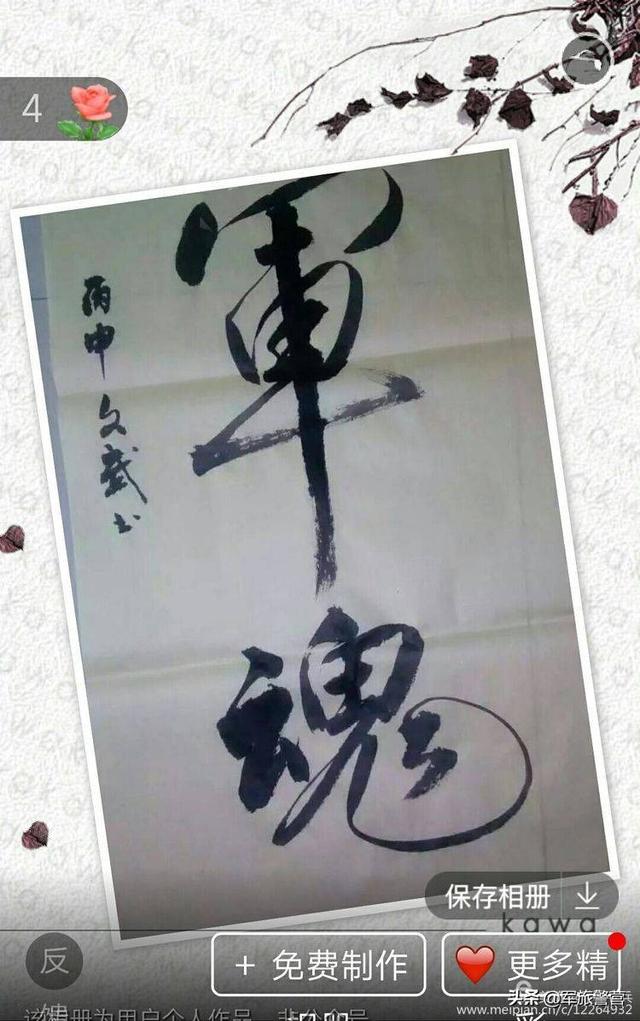 4
軍魂
丙申 文武书
保存相册
kawa
反
+ 免费制作
更多精
头条@军旅警营
www.meipian.cn/c/12264932
该相册为用户个人作品，非公众号